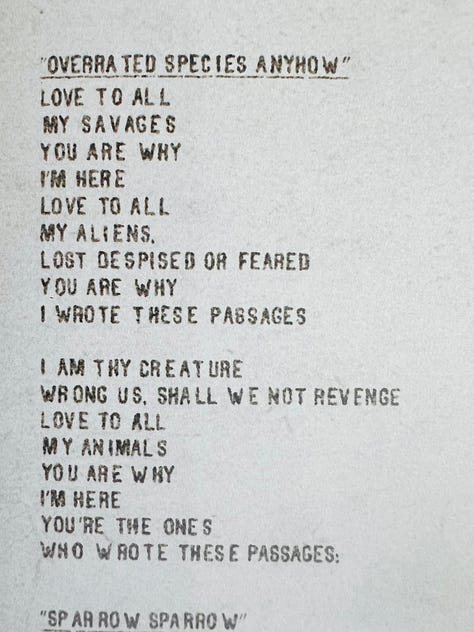 "OVERRATED SPECIES ANYHOW"
LOVE TO ALL
MY SAVAGES
YOU ARE WHY
I'M HERE
LOVE TO ALL
MY ALIENS,
LOST DESPISED OR FEARED
YOU ARE WHY
I WROTE THESE PASSAGES
I AM THY CREATURE
WRONG US, SHALL WE NOT REVENGE
LOVE TO ALL
MY ANIMALS
YOU ARE WHY
I'M HERE
YOU'RE THE ONES
WHO WROTE THESE PASSAGES:
"SPARROW SPARROW"